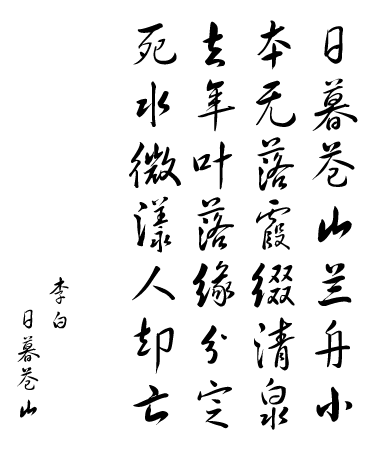 日暮苍山兰舟小
本无落霞缀清泉
去年叶落缘分定
死水微漾人却亡
李白
日暮苍山